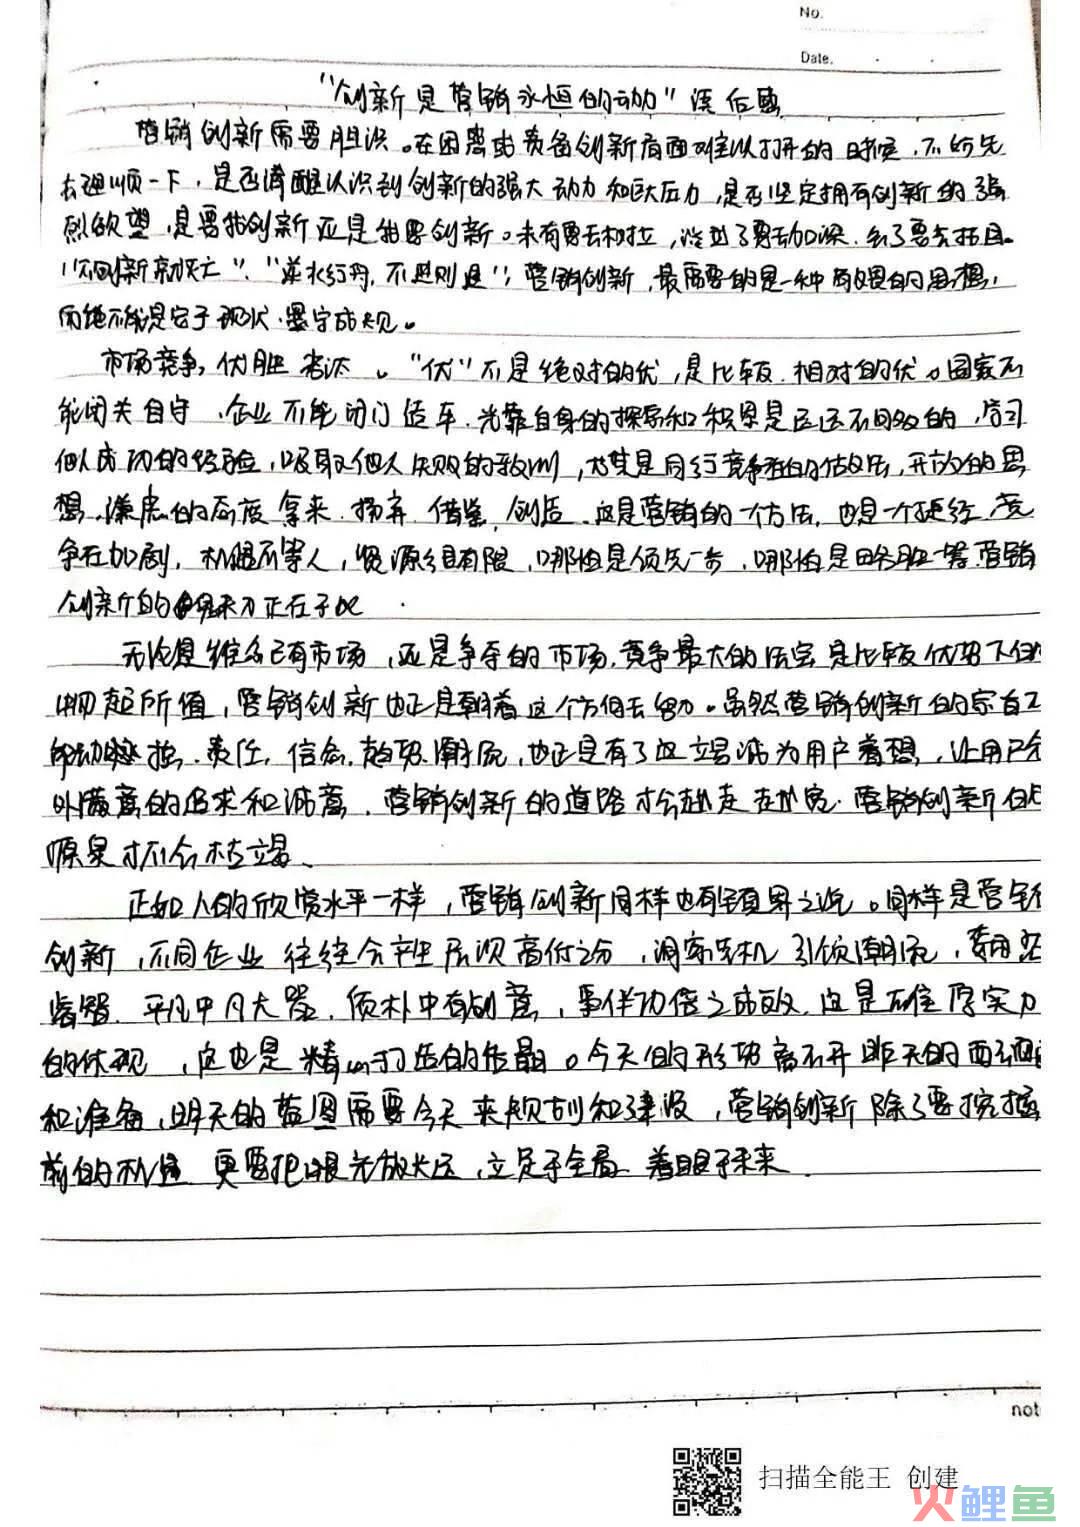 No.
Date.
"创新是营销永恒的动力"读后感
营销创新需要胆识。在困惑或责备创新局面难以打开的时候，不妨先
去理顺一下，是否清醒认识到创新的强大动力和巨大压力，是否坚定拥有创新的强
烈欲望，是要我创新还是我要创新。未有要去树立，淡
"不创新就灭亡"、"逆水行舟，不进则退"；营销创新，最需要的是一种的思想，
而绝不能是安于现状、墨守成规。
市场竞争，优胜劣汰。"优"不是绝对的优，是比较、相对的优。国家不
能闭关自守，企业不能闭门造车，光靠自身的探索和积累是远远不够的，学习
他人成功的经验，吸取他人失败的教训，尤其是同行竞争者的做法，开放的思
想、谦虚的态度、拿来、扬弃、借鉴、创造，这是营销的一个方法，也是一个捷径，竞
争在加剧，机遇不等人，资源很有限，哪怕是领先一步，哪怕是略胜一筹，营销
创新的魅力正在于此
无论是维系已有市场，还是争夺的市场，竞争最大的法宝是比较优势下的
物超所值，营销创新也正是朝着这个方向去努力。虽然营销创新的宗旨不
责任、信念、趋势、潮流，也正是有了这竭诚为用户着想，让用户
外满意的追求和诚意，营销创新的道路才会越走越宽，营销创新的
源泉才不会枯竭、
正如人的欣赏水平一样，营销创新同样也有境界之说。同样是营销
创新，不同企业往往会产生层次高低之分，洞察先机、引领潮流，
睿智、平凡中见大器、质朴中有创意，事半功倍之成效，这是雄厚实力
的体现，这也是精心打造的结晶。今天的形势离不开昨天的
和准备，明天的蓝图需要今天来规划和建设，营销创新除了要挖掘
前的机遇 更要把眼光放长远，立足于全局、着眼于未来、
not
扫描全能王 创建
火鲤鱼